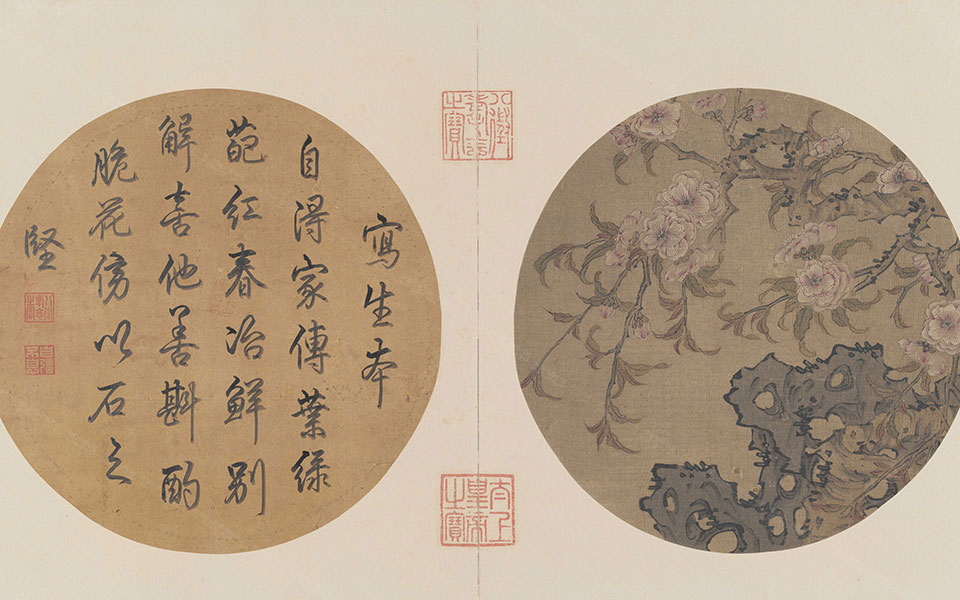 寫生本
自得家傳葉綠
葩紅春冶鮮別
解喜他善斟酌
脆花傍以石之
堅
八徵
耄念
之寶
太上
皇帝
之寶